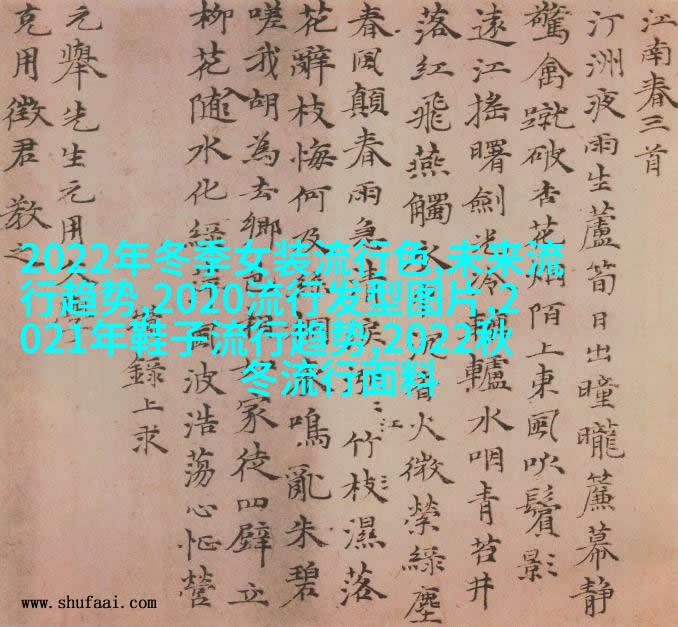 江南春三首
汀洲夜雨生蘆筍日出曈曨簾幕靜
驚禽蹴破杏花烟陌上東風吹鬢影
遠江搖曙劍光冷轆轤水咽青苔井
落紅飛燕觸衣香火微縈綠塵
春風顛春雨急清淚竹枝濕落
江
花辭枝悔何及絲桐哀鳴亂朱碧
嗟我胡為去鄉邑家徒四壁立
柳花隨水化綠風波浩蕩心怔營
錄上求
元舉先生元用
克用徵君教之
2022年冬季女装流行色,未来流
行趋势,2020流行发型图片,2
021年鞋子流行趋势,2022秋
冬流行面料
www.shufaai.com